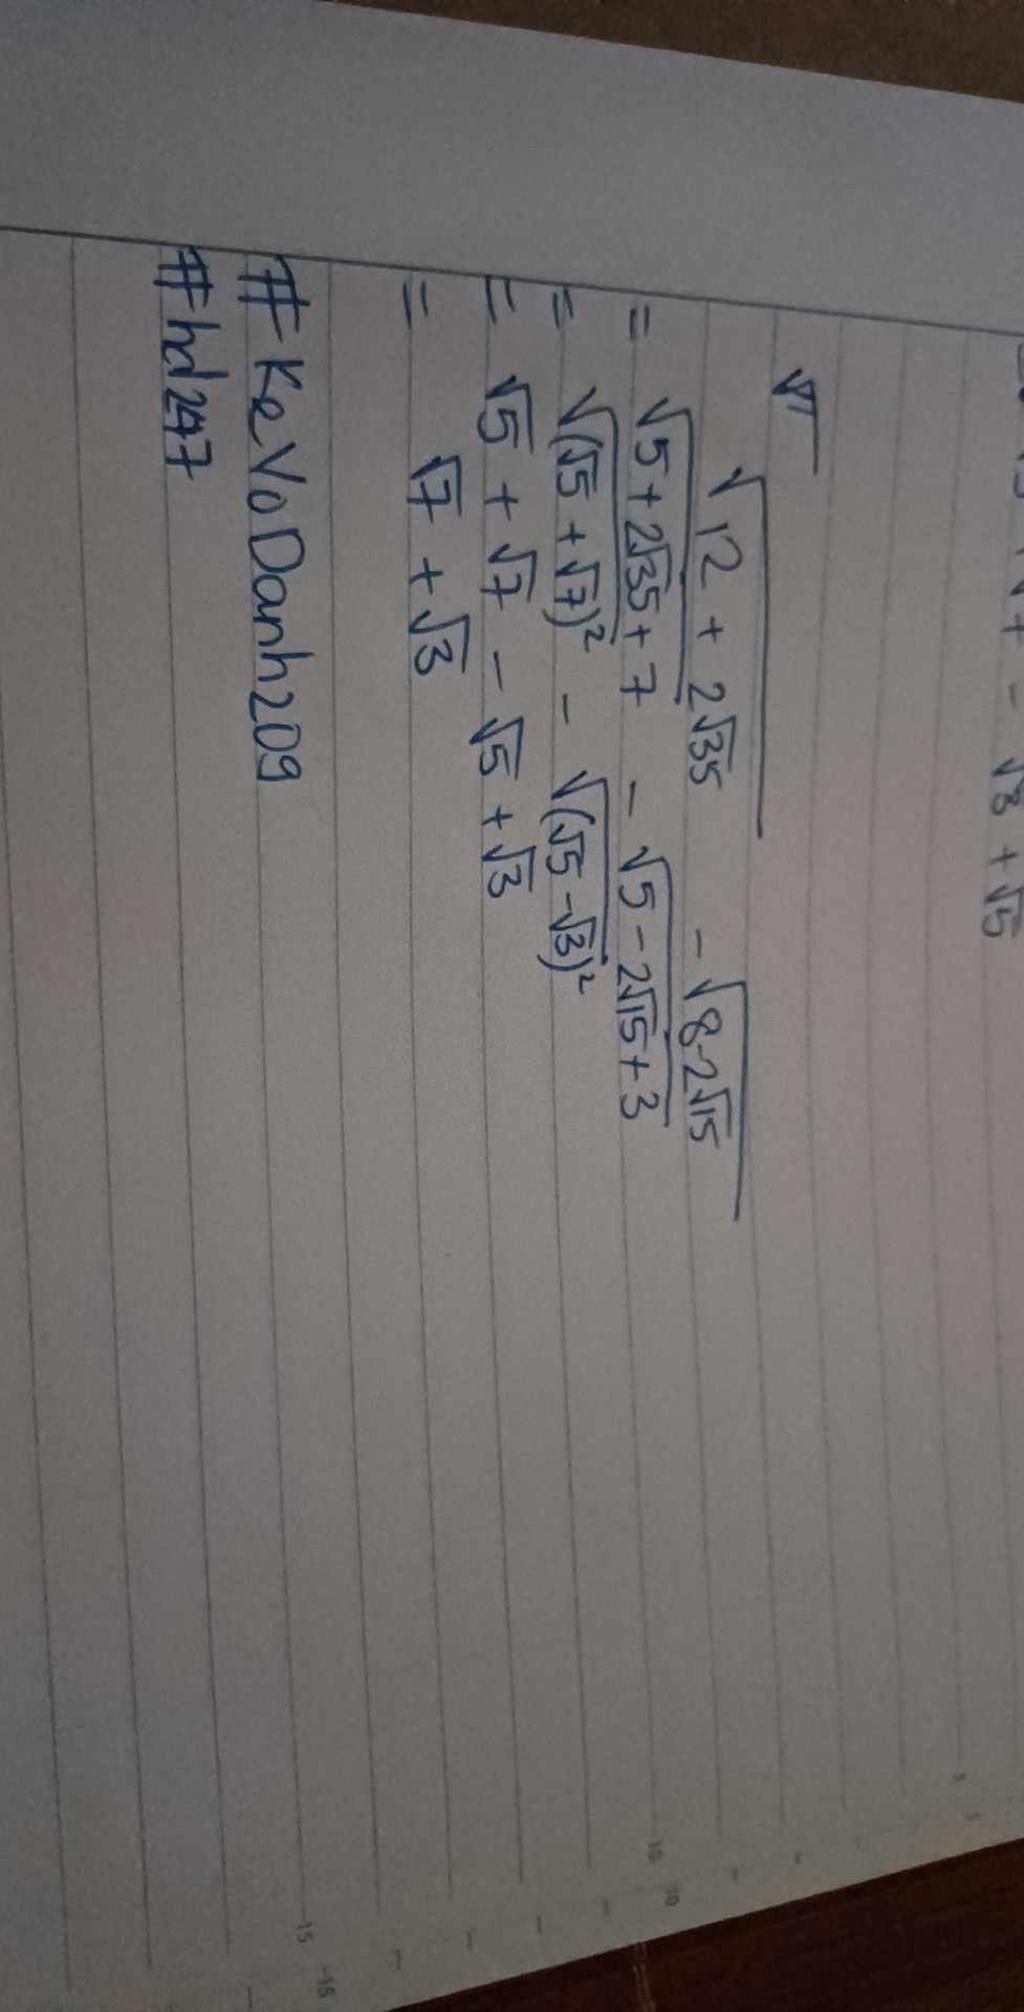 √7 - √3 + √5
√
√(12 + 2√35) - √(8-2√15)
= √(5 + 2√35 + 7) - √(5 - 2√15 + 3)
= √((√5 + √7)²) - √((√5 - √3)²)
= √5 + √7 - √5 + √3
= √7 + √3
#KeVoDanh209
#hd247